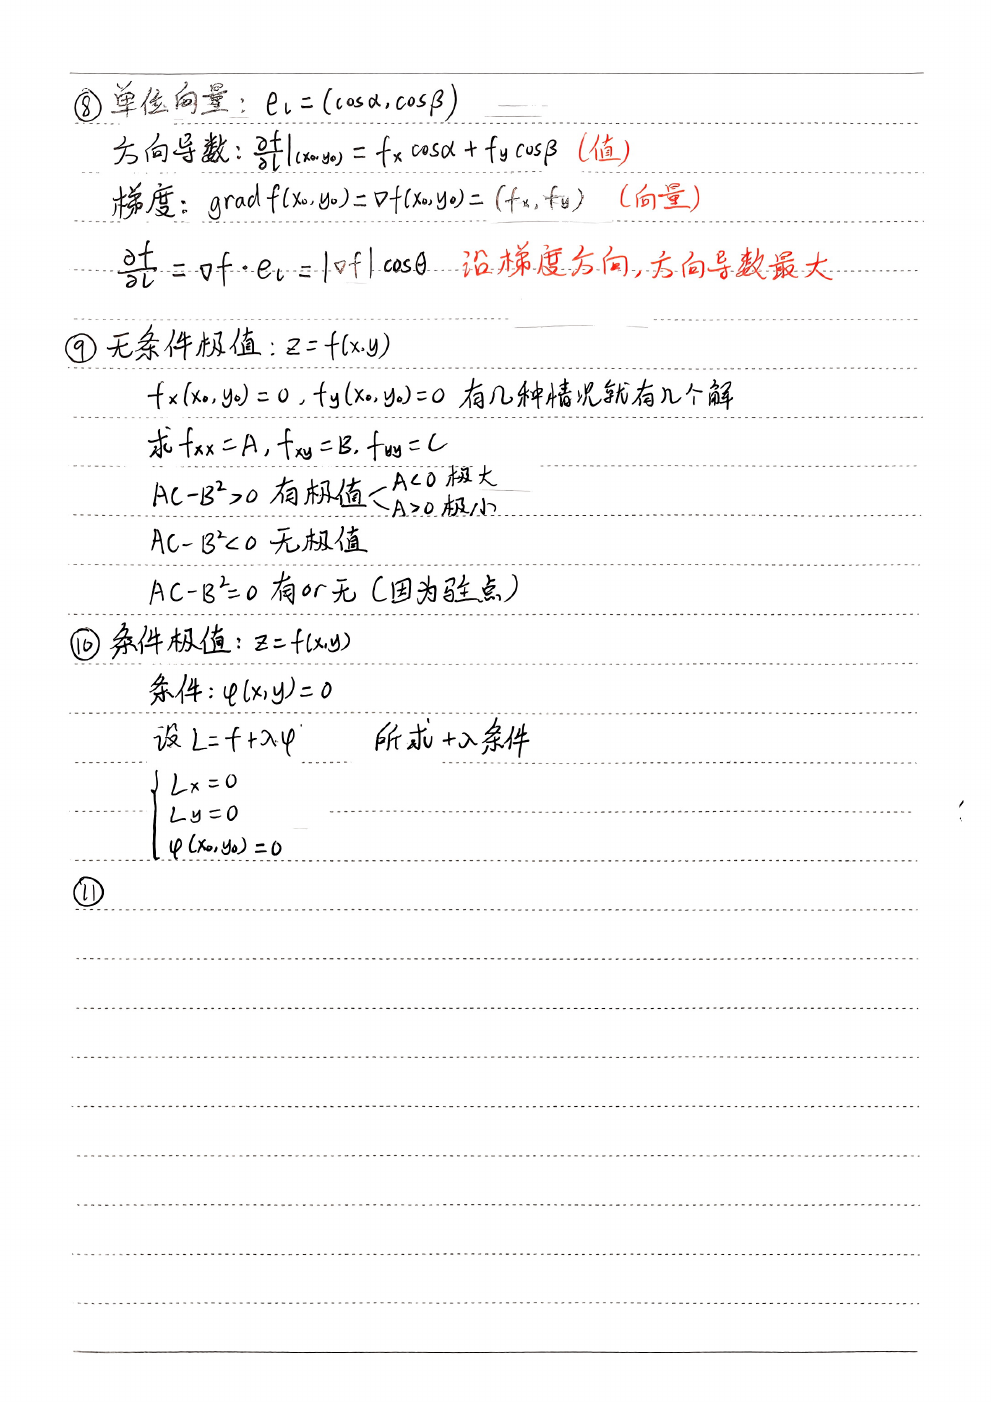 ⑧ 单位向量: e_l = (cosα, cosβ)
方向导数: ∂f/∂l|(x₀,y₀) = f_x cosα + f_y cosβ (值)
梯度: grad f(x₀,y₀) = ∇f(x₀,y₀) = (f_x, f_y) (向量)
∂f/∂l = ∇f · e_l = |∇f| cosθ 沿梯度方向,方向导数最大
⑨ 无条件极值: z = f(x,y)
f_x(x₀,y₀) = 0, f_y(x₀,y₀) = 0 有几种情况就有几个解
求 f_xx = A, f_xy = B, f_yy = C
AC-B²>0 有极值 < A<0 极大
A>0 极小
AC-B²<0 无极值
AC-B²=0 有or无 (因为驻点)
⑩ 条件极值: z = f(x,y)
条件: φ(x,y) = 0
设 L = f + λφ 所求 + λ条件
{ L_x = 0
L_y = 0
φ(x₀,y₀) = 0
⑪